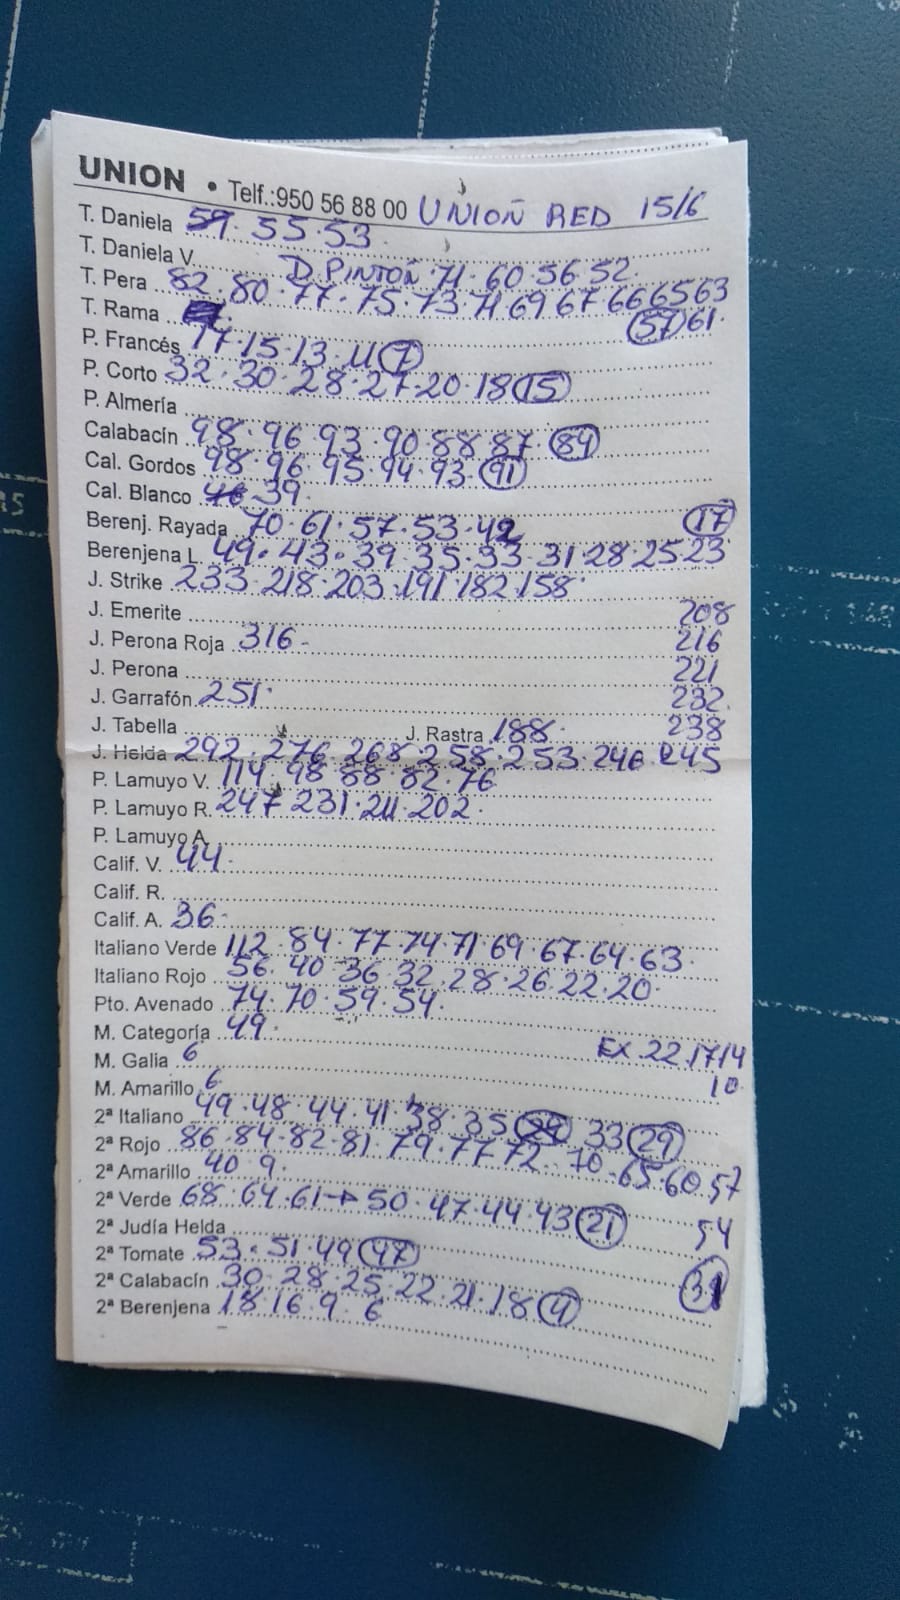 UNION • Telf.:950 56 88 00 UNION RED 15/6
T. Daniela 59. 55.53.
T. Daniela V. D. PINTON 71. 60.56.52.
T. Pera 82.80.77.75.73.71 69 67 66 65 63
T. Rama 57 61.
P. Francés 17.15.13.11 7
P. Corto 32.30.28.27.20.18 15
P. Almería
Calabacín 98.96.93.90.88 87. 84
Cal. Gordos 98.96.95.94.93. 91
Cal. Blanco 39.
Berenj. Rayada 70.61.57.53.42 17
Berenjena L 49.43.39.35.33.31.28.25 23
J. Strike 233.218.203.191.182.158
J. Emerite 208
J. Perona Roja 316- 216
J. Perona 221
J. Garrafón 251. 232.
J. Tabella J. Rastra 188. 238
J. Helda 292.276.268.258.253.246.245
P. Lamuyo V. 114.98 88 82.76
P. Lamuyo R. 247 231.211.202.
P. Lamuyo A.
Calif. V. 44.
Calif. R.
Calif. A. 36.
Italiano Verde 112.84.77.74.71.69.67.64.63.
Italiano Rojo 56.40 36.32.28.26.22.20.
Pto. Avenado 74.70.59.54.
M. Categoría 49. EX.22.17 14
M. Galia 6 10
M. Amarillo 6.
2ª Italiano 49.48.44.41.38.35 33 29
2ª Rojo 86.84.82.81.79.77 72.70.65.60 57
2ª Amarillo 40.9.
2ª Verde 68.64.61→50.47.44.43 21 54
2ª Judía Helda
2ª Tomate 53.51.49 47 31
2ª Calabacín 30.28.25.22.21.18 4
2ª Berenjena 18.16.9.6